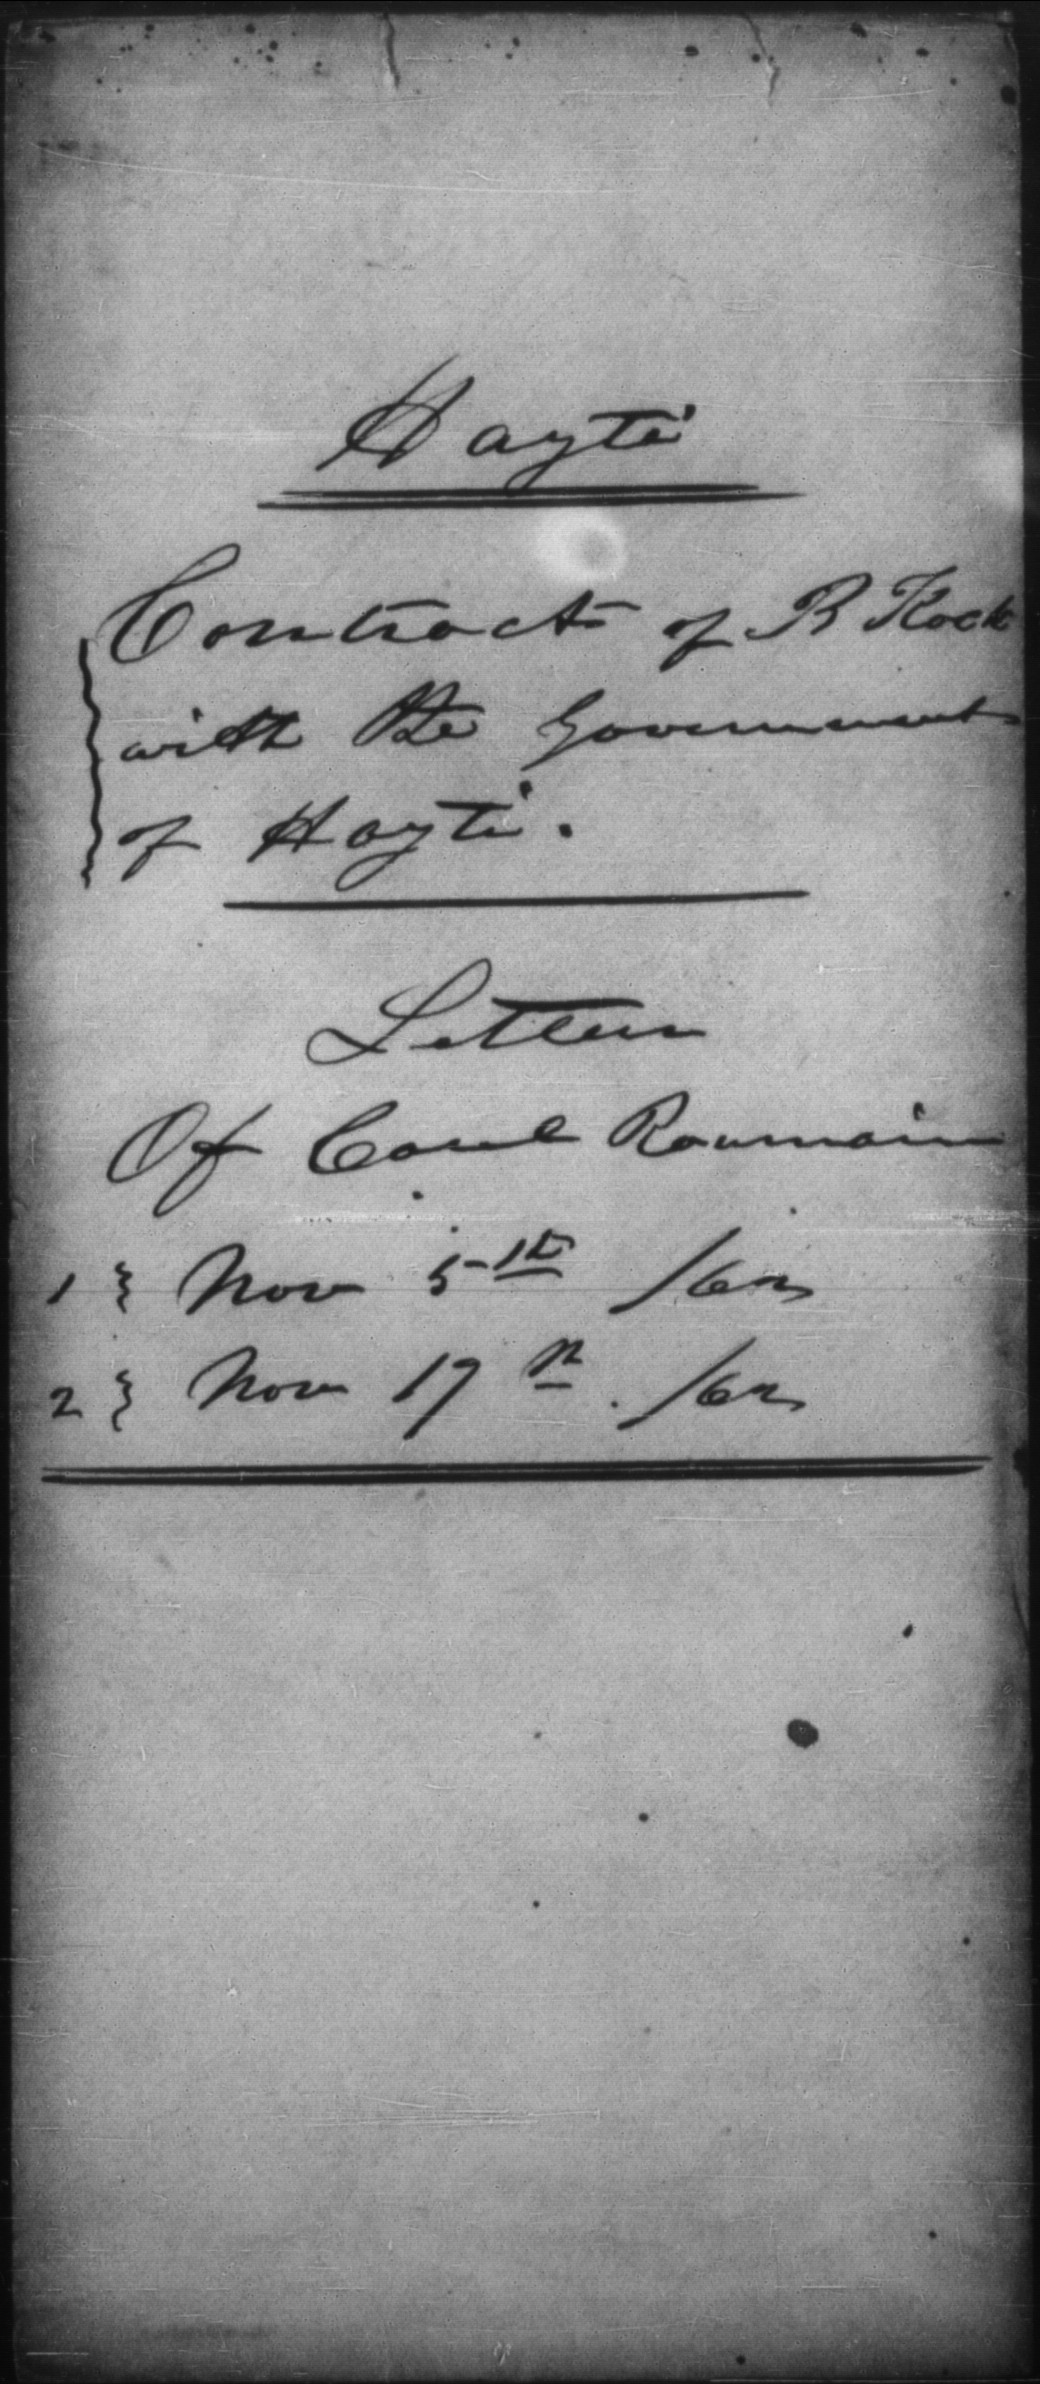 Hayti
Contract of B Kock
with the Government
of Hayti.
Letters
Of Consl Roumain
1 } Nov 5th /62
2 } Nov 17th /62